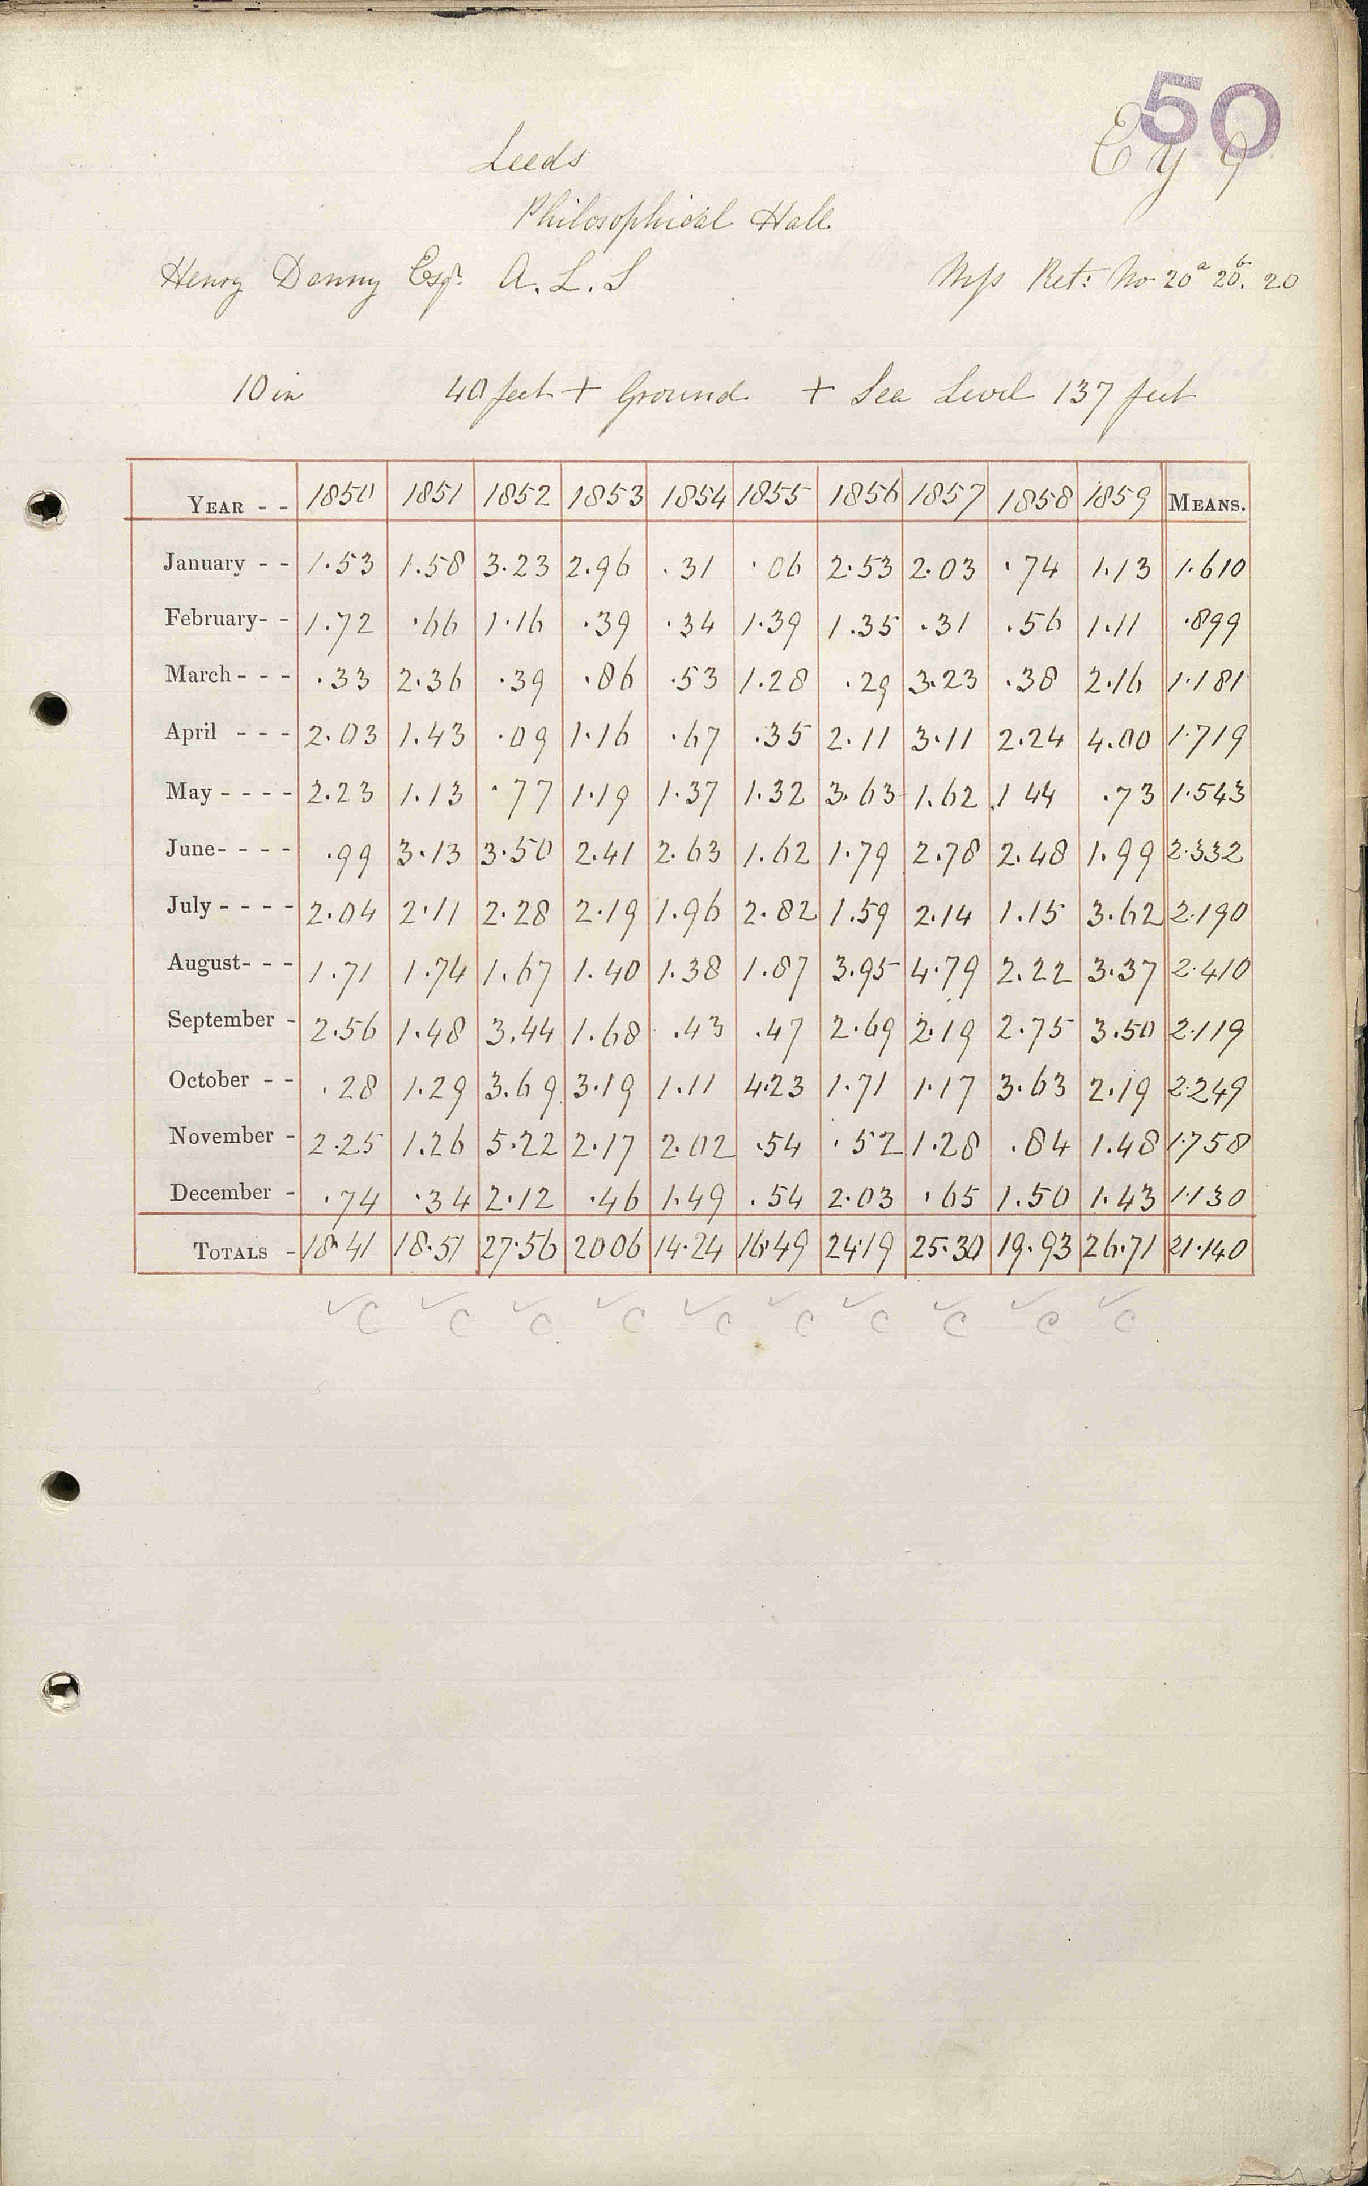 50
E y 9
Leeds
Philosophical Hall
Henry Denny Esqr. A. L. S Mss Ret: No 20a 20b. 20
10 in 40 feet + Ground + Sea Level 137 feet
YEAR - - 1850 1851 1852 1853 1854 1855 1856 1857 1858 1859 MEANS.
January - - 1.53 1.58 3.23 2.96 .31 .06 2.53 2.03 .74 1.13 1.610
February- - 1.72 .66 1.16 .39 .34 1.39 1.35 .31 .56 1.11 .899
March - - - .33 2.36 .39 .86 .53 1.28 .29 3.23 .38 2.16 1.181
April - - - 2.03 1.43 .09 1.16 .67 .35 2.11 3.11 2.24 4.00 1.719
May - - - - 2.23 1.13 .77 1.19 1.37 1.32 3.63 1.62 1 44 .73 1.543
June- - - - .99 3.13 3.50 2.41 2.63 1.62 1.79 2.78 2.48 1.99 2.332
July - - - - 2.04 2.11 2.28 2.19 1.96 2.82 1.59 2.14 1.15 3.62 2.190
August- - - 1.71 1.74 1.67 1.40 1.38 1.87 3.95 4.79 2.22 3.37 2.410
September - 2.56 1.48 3.44 1.68 .43 .47 2.69 2.19 2.75 3.50 2.119
October - - .28 1.29 3.69 3.19 1.11 4.23 1.71 1.17 3.63 2.19 2.249
November - 2.25 1.26 5.22 2.17 2.02 .54 .52 1.28 .84 1.48 1.758
December - .74 .34 2.12 .46 1.49 .54 2.03 .65 1.50 1.43 1.130
TOTALS - 18.41 18.51 27.56 20 06 14.24 16.49 24.19 25.30 19.93 26.71 21.140
✓C ✓C ✓C ✓C ✓C ✓C ✓C ✓C ✓C ✓C